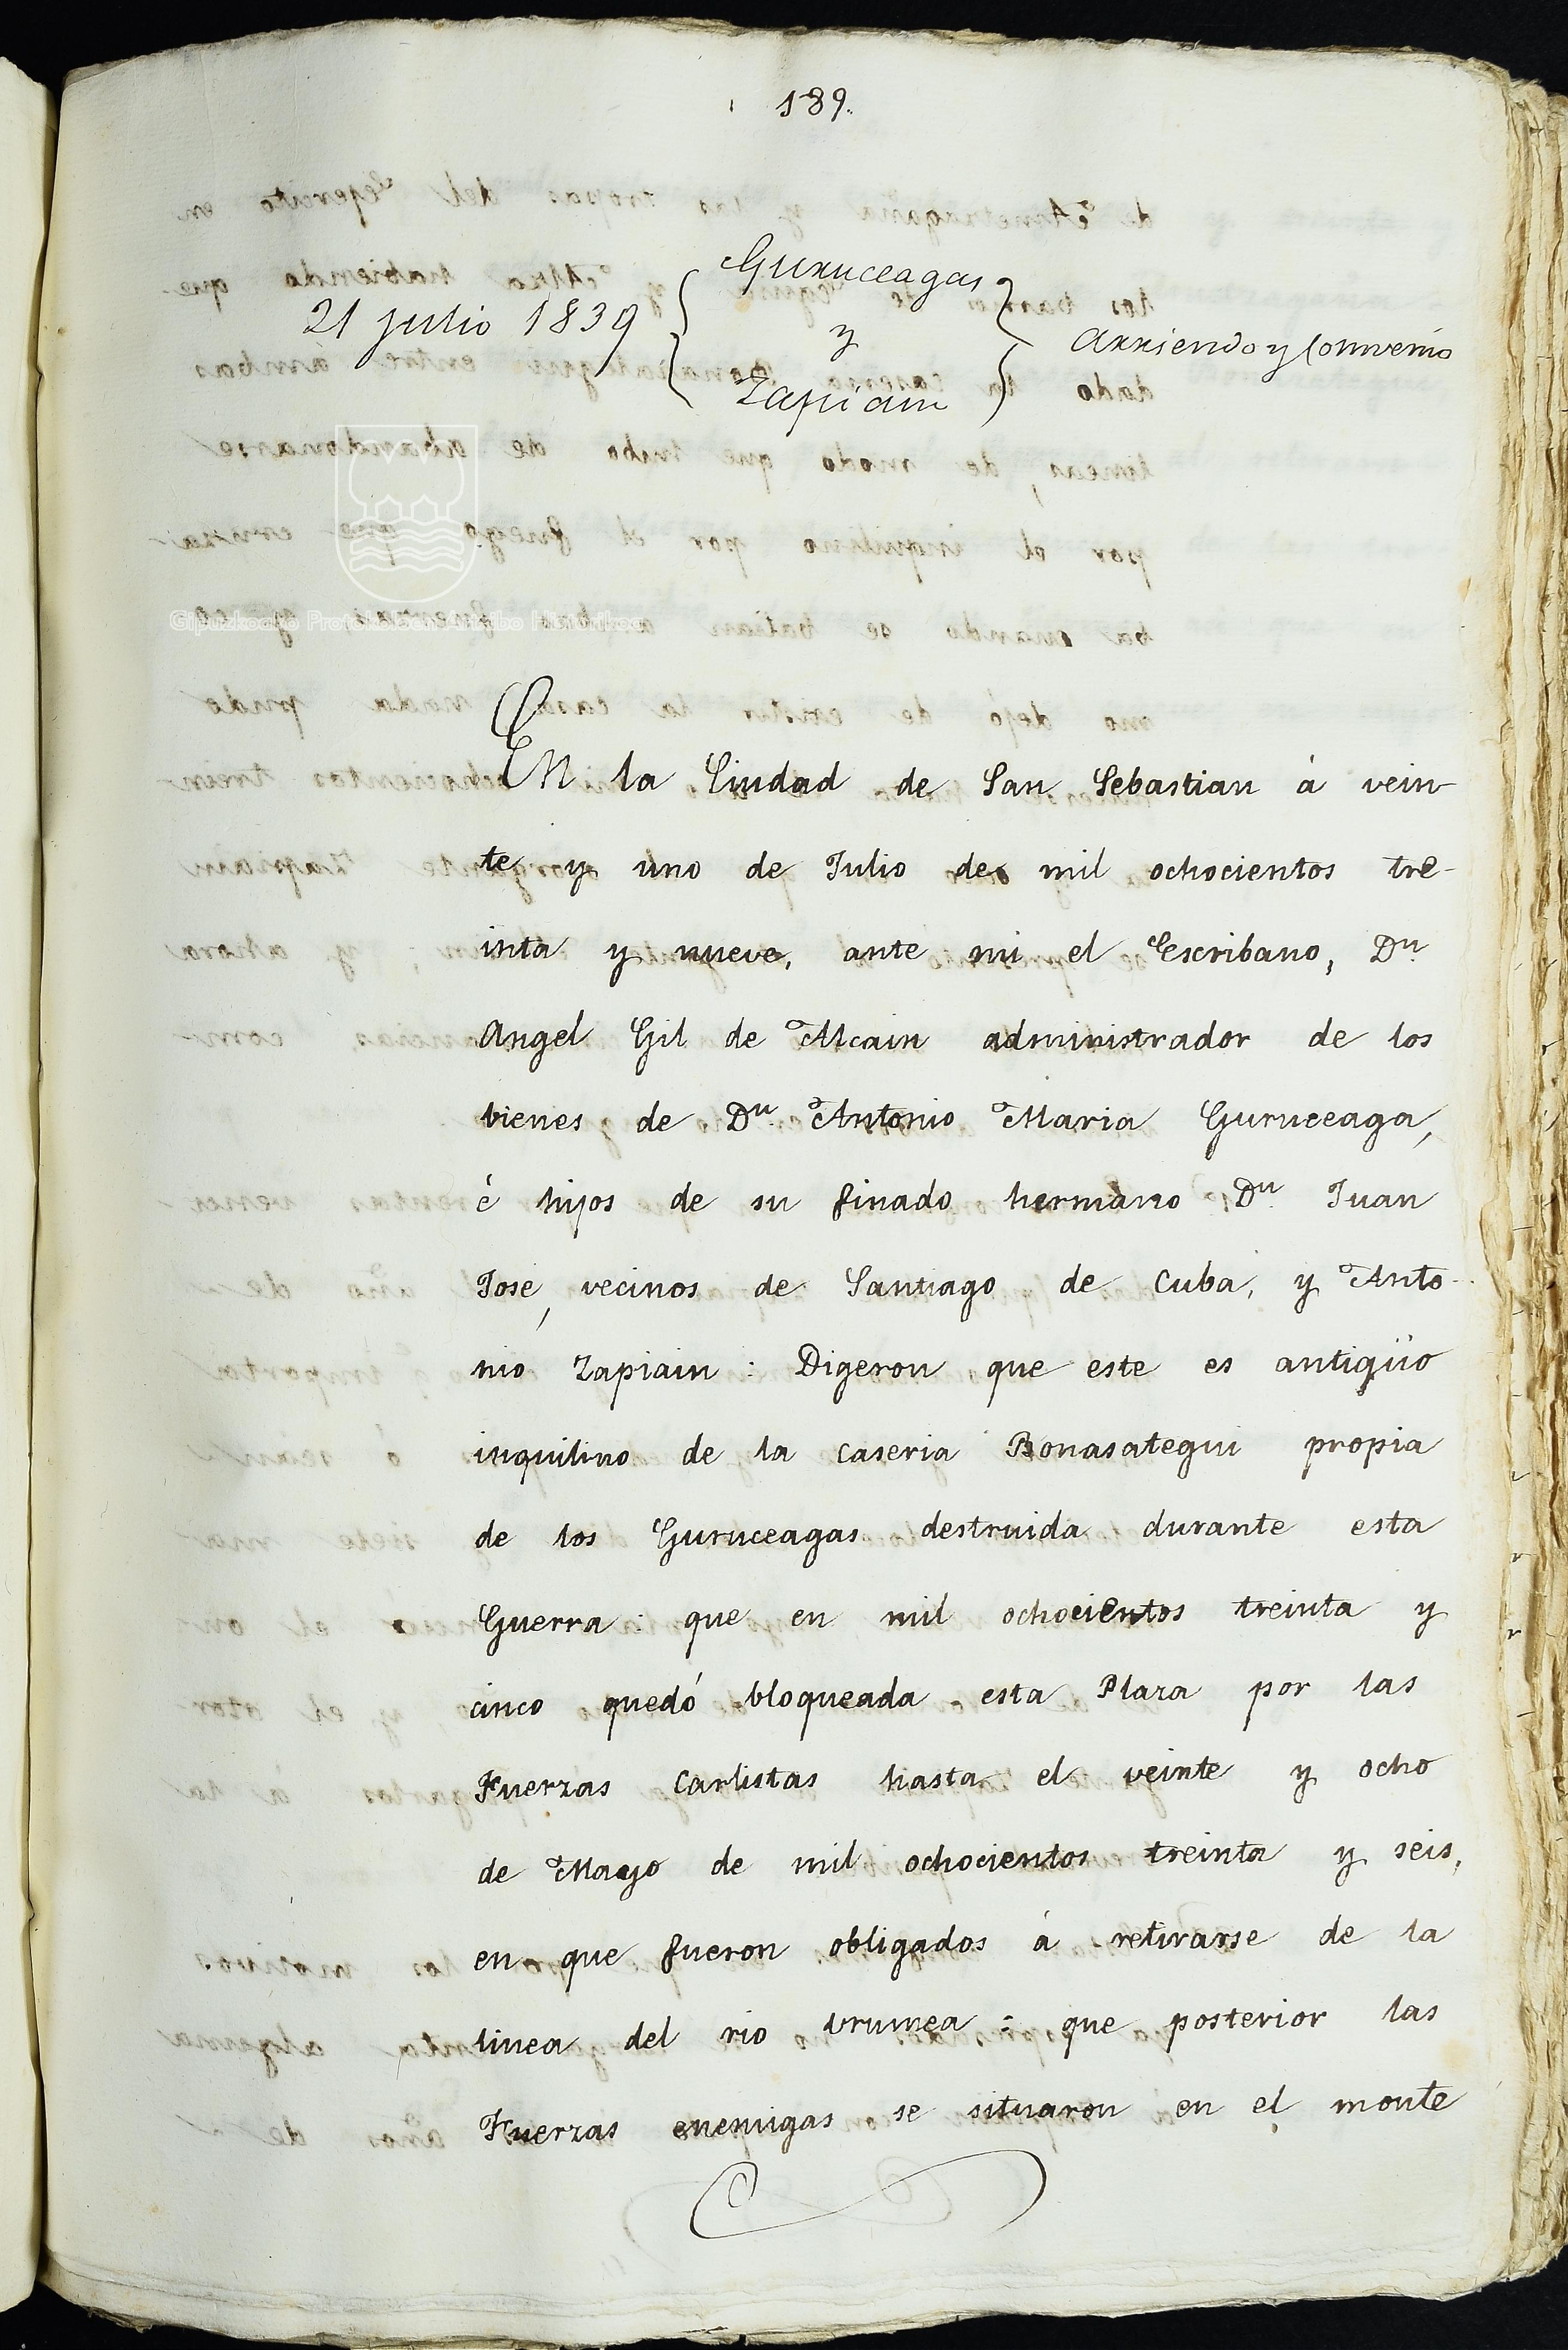 189.
Guruceagas
21 julio 1839 y Arriendo y Combenio
Zapiain
Gipuzkoako Protokoloen Artxibo Historikoa
En la Ciudad de San Sebastian á vein-
te y uno de Julio de mil ochocientos tre-
inta y nueve, ante mi el Escribano, Dn.
Angel Gil de Alcain administrador de los
bienes de Dn. Antonio Maria Guruceaga,
é hijos de su finado hermano Dn. Juan
José, vecinos de Santiago de Cuba, y Anto-
nio Zapiain: Digeron que este es antigüo
inquilino de la caseria Bonasategui propia
de los Guruceagas destruida durante esta
Guerra: que en mil ochocientos treinta y
cinco quedó bloqueada esta Plaza por las
Fuerzas Carlistas hasta el veinte y ocho
de Mayo de mil ochocientos treinta y seis,
en que fueron obligados á retirarse de la
linea del rio Urumea: que posterior las
Fuerzas enemigas se situaron en el monte